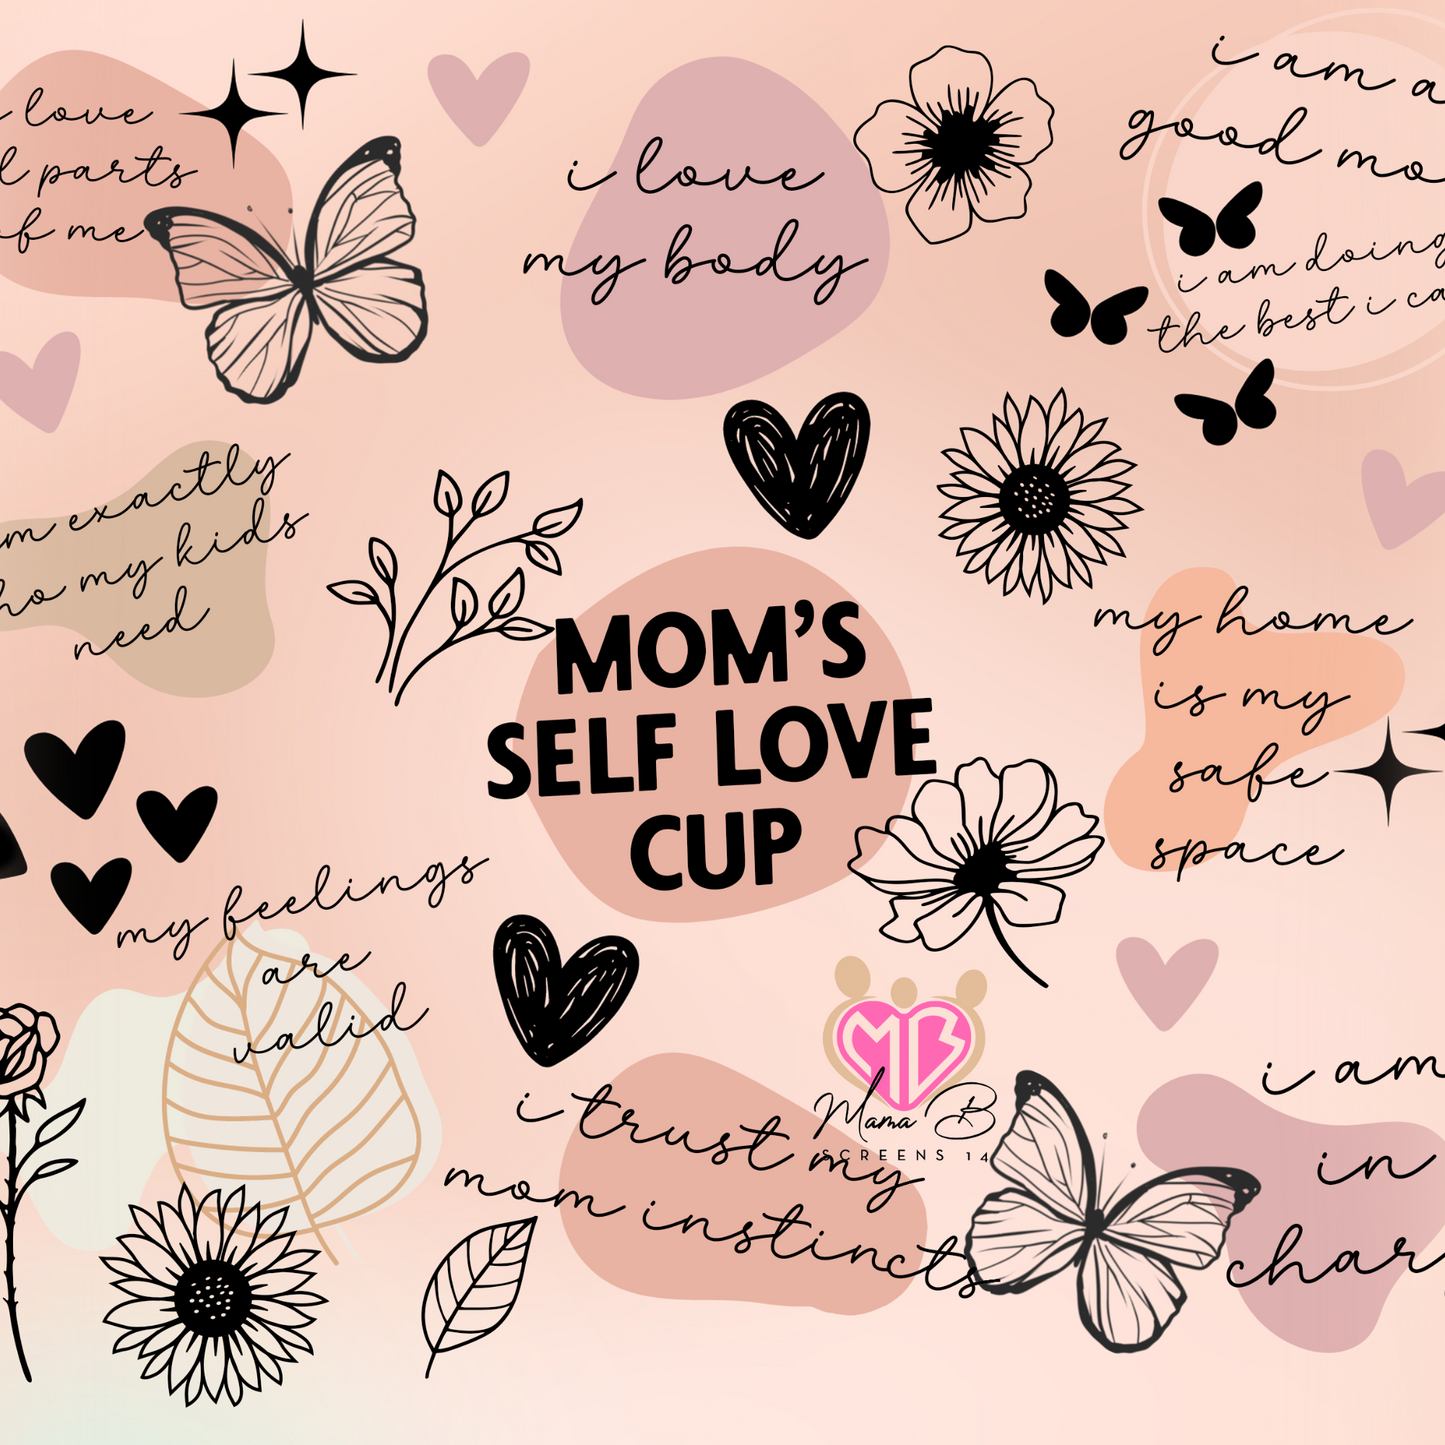 love
parts
me
i love
my body
i am a
good
i am doing
the best i
exactly
my kids
need
MOM'S
SELF LOVE
CUP
my home
is my
safe
space
my feelings
are
valid
MB
Mama B
SCREENS 14
i trust my
mom instincts
i am
in